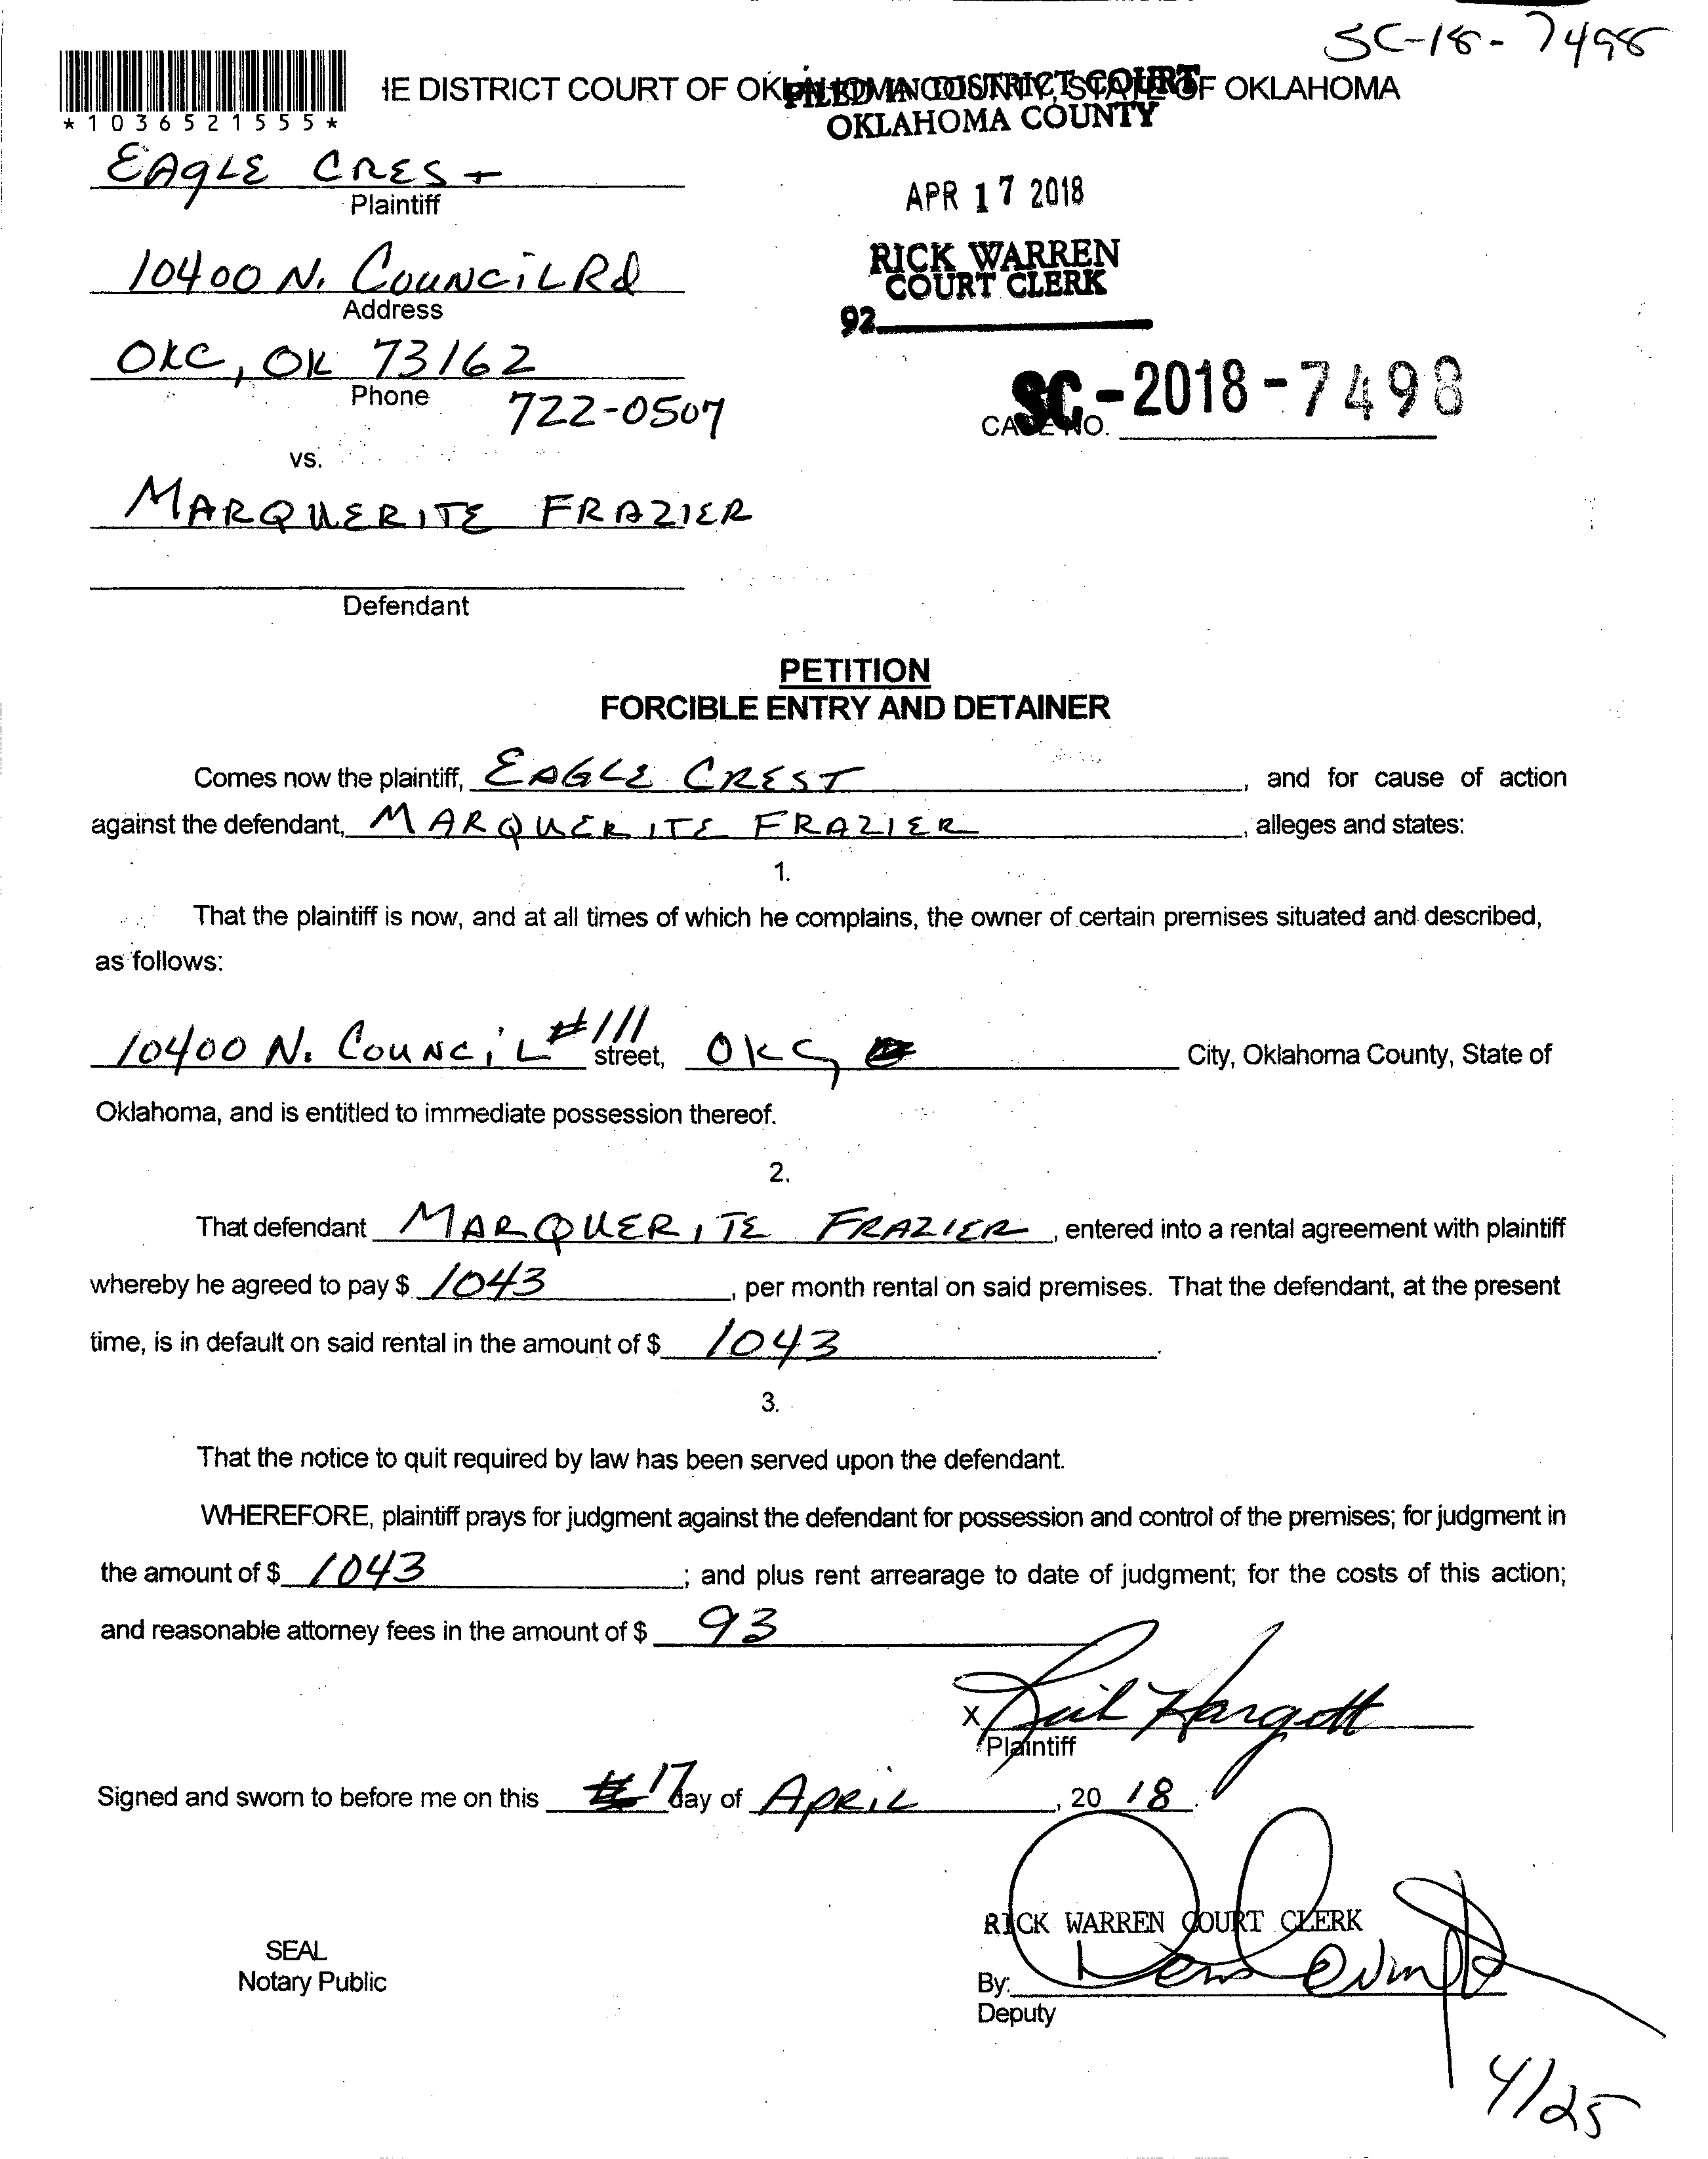 SC-18-7498
IE DISTRICT COURT OF OKLAHOMA COUNTY, STATE OF OKLAHOMA
FILED IN DISTRICT COURT
OKLAHOMA COUNTY
*1036521555*
EAGLE CREST
Plaintiff
APR 17 2018
10400 N. COUNCIL Rd
Address
RICK WARREN
COURT CLERK
92
OKC, OK 73162
Phone
722-0507
SC-2018-7498
CASE NO.
vs.
MARQUERITE FRAZIER
Defendant
PETITION
FORCIBLE ENTRY AND DETAINER
Comes now the plaintiff, EAGLE CREST, and for cause of action
against the defendant, MARQUERITE FRAZIER, alleges and states:
1.
That the plaintiff is now, and at all times of which he complains, the owner of certain premises situated and described,
as follows:
10400 N. COUNCIL #111 street, OKC City, Oklahoma County, State of
Oklahoma, and is entitled to immediate possession thereof.
2.
That defendant MARQUERITE FRAZIER, entered into a rental agreement with plaintiff
whereby he agreed to pay $ 1043, per month rental on said premises. That the defendant, at the present
time, is in default on said rental in the amount of $ 1043.
3.
That the notice to quit required by law has been served upon the defendant.
WHEREFORE, plaintiff prays for judgment against the defendant for possession and control of the premises; for judgment in
the amount of $ 1043; and plus rent arrearage to date of judgment; for the costs of this action;
and reasonable attorney fees in the amount of $ 93
X Hargott
Plaintiff
Signed and sworn to before me on this 17 day of APRIL, 2018.
RICK WARREN COURT CLERK
SEAL
Notary Public
By:
Deputy
4/25